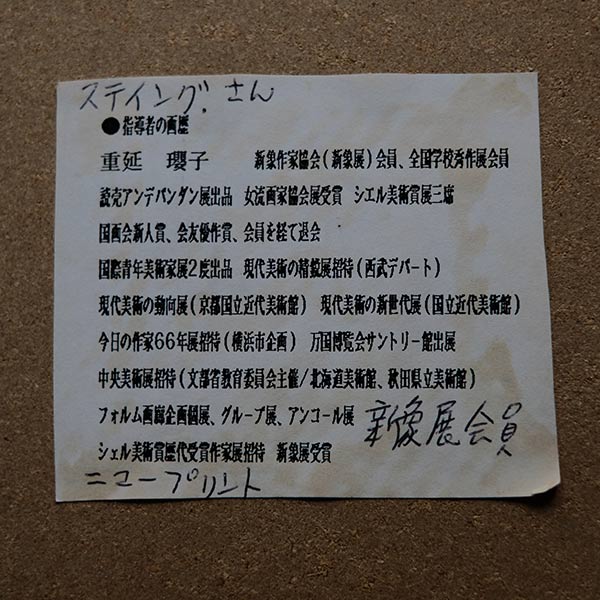 スティング.さん
●指導者の画歴
重延 瓔子 新象作家協会(新象展)会員、全国学校秀作展会員
読売アンデパンダン展出品 女流画家協会展受賞 シエル美術賞展三席
国画会新人賞、会友優作賞、会員を経て退会
国際青年美術家展2度出品 現代美術の精鋭展招待(西武デパート)
現代美術の動向展(京都国立近代美術館) 現代美術の新世代展(国立近代美術館)
今日の作家66年展招待(横浜市企画) 万国博覧会サントリー館出展
中央美術展招待(文部省教育委員会主催/北海道美術館、秋田県立美術館)
フォルム画廊企画個展、グループ展、アンコール展 新象展会員
シェル美術賞歴代受賞作家展招待 新象展受賞
ニコープリント